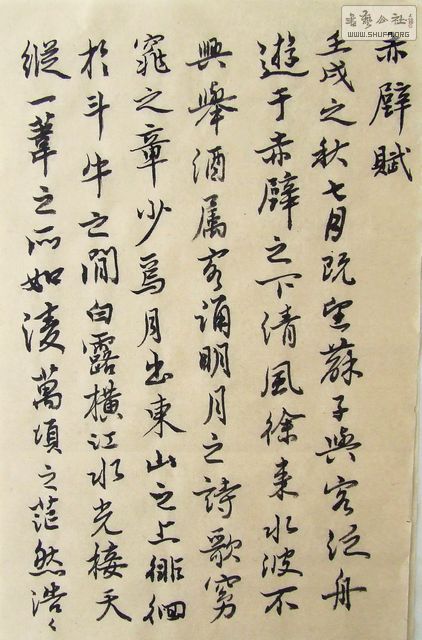 赤壁賦
壬戌之秋七月既望蘇子與客泛舟
遊于赤壁之下清風徐來水波不
興舉酒属客誦明月之詩歌窈
窕之章少焉月出東山之上徘徊
於斗牛之間白露横江水光接天
縱一葦之所如凌萬頃之茫然浩〻
书艺公社
WWW.SHUFA.ORG